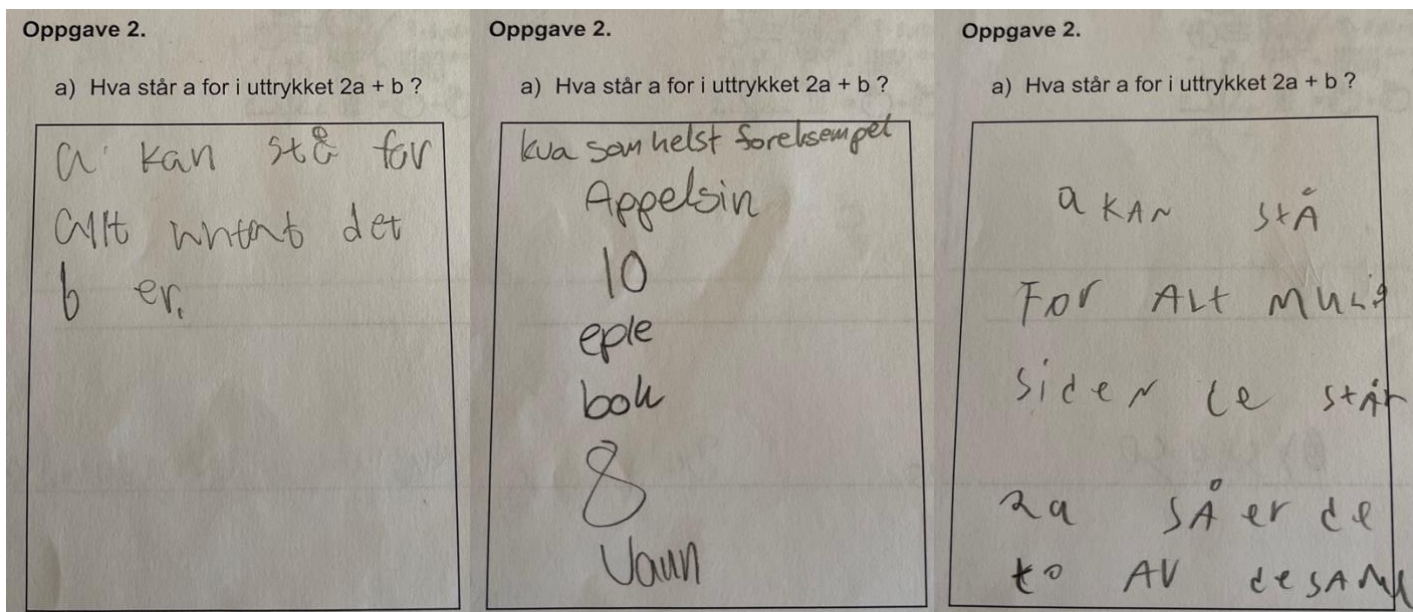 Oppgave 2.
a) Hva står a for i uttrykket 2a + b ?
a kan stå for
allt unntat det
b er.
Oppgave 2.
a) Hva står a for i uttrykket 2a + b ?
kva som helst foreksempel
Appelsin
10
eple
bok
8
Vann
Oppgave 2.
a) Hva står a for i uttrykket 2a + b ?
a KAN stÅ
For ALt muLig
siden de stÅr
2a SÅ er de
to AV desAMe